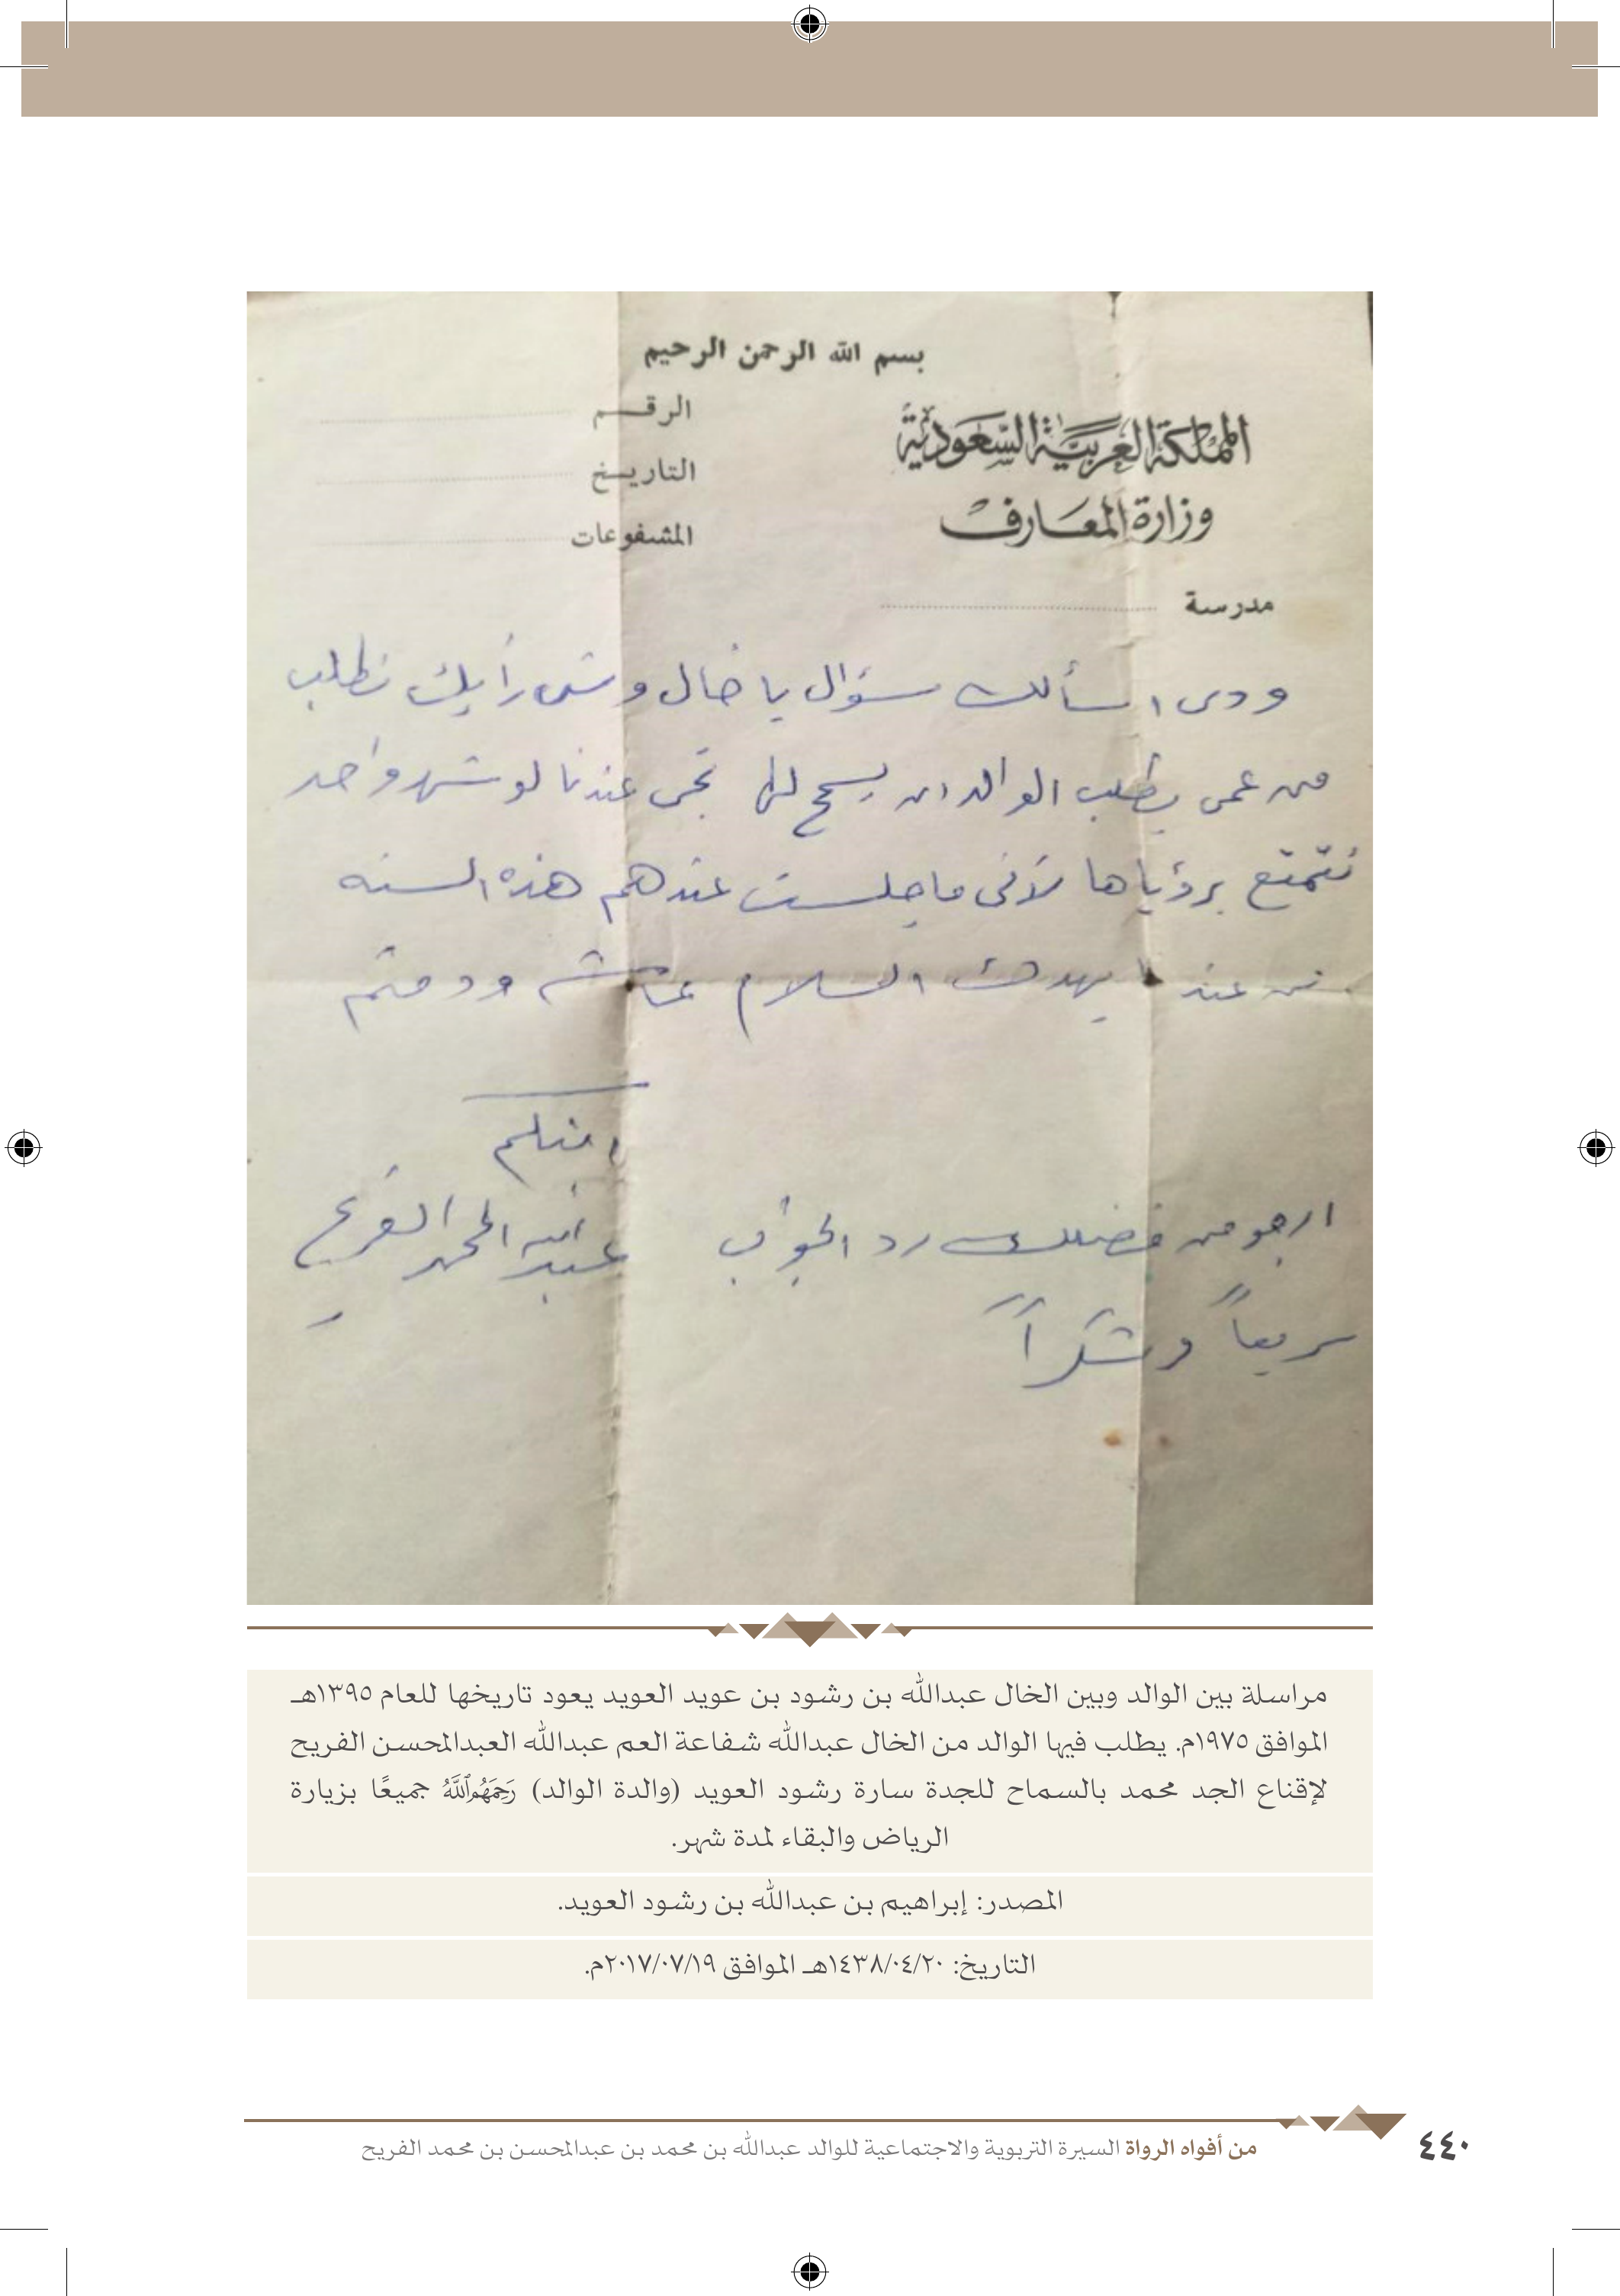 بسم الله الرحمن الرحيم
المملكة العربية السعودية
وزارة المعارف
مدرسة
الرقم
التاريخ
المشفوعات
ودى اسألك سؤال يا خال وش رأيك نطلب
من عمى يطلب الوالد ان يسمح لها تجى عندنا لو شهر واحد
نتمتع برؤياها لأنى ما جلست عندهم هذه السنه
من عندنا يهدك السلام عائشه ودمتم
ابنكم
عبدالله المحمد الفريح
ارجو من فضلك رد الجواب
سريعاً وشكراً
مراسلة بين الوالد وبين الخال عبدالله بن رشود بن عويد العويد يعود تاريخها للعام ١٣٩٥هـ
الموافق ١٩٧٥م. يطلب فيها الوالد من الخال عبدالله شفاعة العم عبدالله العبدالمحسن الفريح
لإقناع الجد محمد بالسماح للجدة سارة رشود العويد (والدة الوالد) رَحِمَهُمُ ٱللَّهُ جميعًا بزيارة
الرياض والبقاء لمدة شهر.
المصدر: إبراهيم بن عبدالله بن رشود العويد.
التاريخ: ١٤٣٨/٠٤/٢٠هـ الموافق ٢٠١٧/٠٧/١٩م.
من أفواه الرواة السيرة التربوية والاجتماعية للوالد عبدالله بن محمد بن عبدالمحسن بن محمد الفريح
٤٤٠